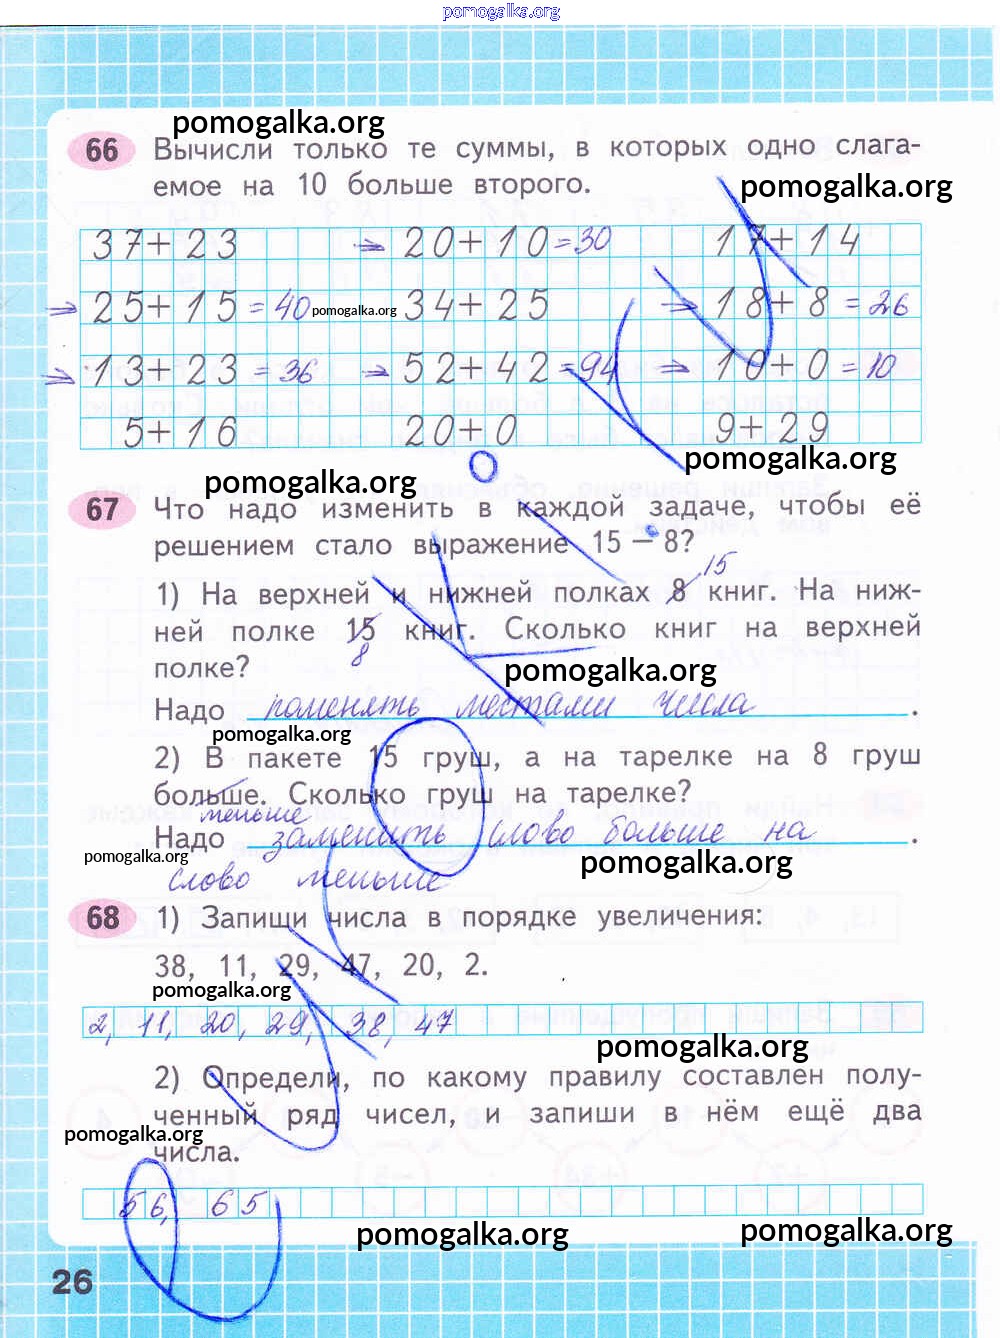 pomogalka.org
pomogalka.org
66 Вычисли только те суммы, в которых одно слага-
емое на 10 больше второго.
pomogalka.org
37+23 → 20+10=30 17+14
→ 25+15=40 pomogalka.org 34+25 → 18+8=26
→ 13+23=36 → 52+42=94 → 10+0=10
5+16 20+0 9+29
pomogalka.org
pomogalka.org
67 Что надо изменить в каждой задаче, чтобы её
решением стало выражение 15 – 8?
15
1) На верхней и нижней полках 8 книг. На ниж-
ней полке 15 книг. Сколько книг на верхней
8
полке?
pomogalka.org
Надо поменять местами числа.
pomogalka.org
2) В пакете 15 груш, а на тарелке на 8 груш
больше. Сколько груш на тарелке?
меньше
Надо заменить слово больше на.
pomogalka.org
pomogalka.org
слово меньше
68 1) Запиши числа в порядке увеличения:
38, 11, 29, 47, 20, 2.
pomogalka.org
2, 11, 20, 29, 38, 47
pomogalka.org
2) Определи, по какому правилу составлен полу-
ченный ряд чисел, и запиши в нём ещё два
pomogalka.org
числа.
56, 65
pomogalka.org
pomogalka.org
26